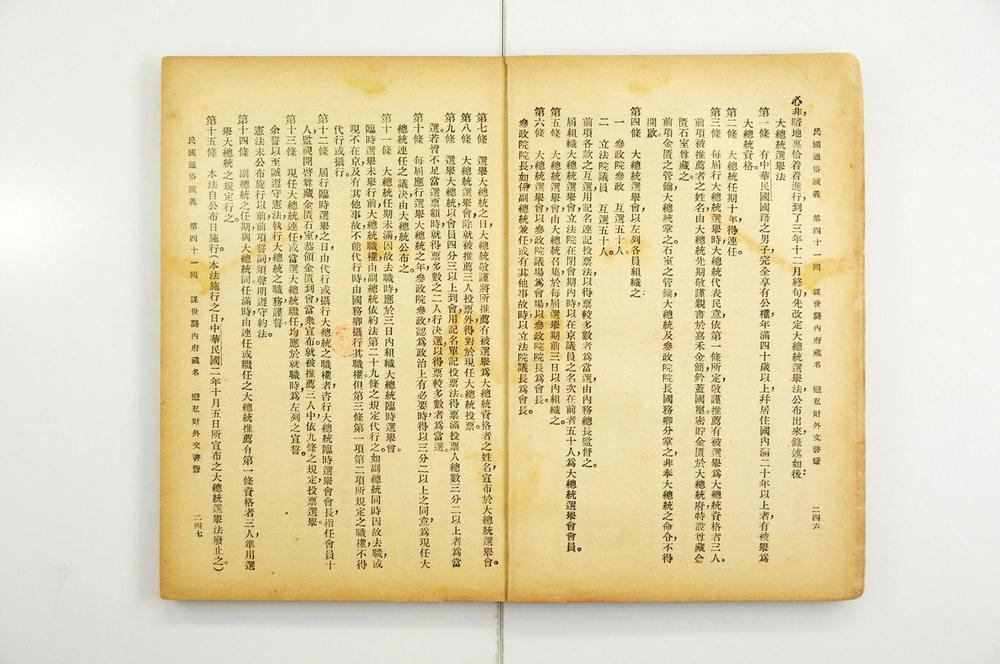 民國通俗演義　第四十一囘　謀世襲內府藏名　戀私財外交啓釁　二四六
心非，暗地裏恰着着進行，到了三年十二月終旬，先改定大總統選舉法，公布出來，錄述如後：
大總統選舉法
第一條　有中華民國國籍之男子，完全享有公權，年滿四十歲以上，幷居住國內滿二十年以上者，有被舉爲
大總統資格。
第二條　大總統任期十年，得連任。
第三條　每屆行大總統選舉時，大總統代表民意，依第一條所定，敬謹推薦有被選舉爲大總統資格者三人。
前項被推薦者之姓名，由大總統先期敬謹親書於嘉禾金簡，鈐蓋國璽，密貯金匱於大總統府特設尊藏金
匱石室尊藏之。
前項金匱之管鑰，大總統掌之。石室之管鑰，大總統及參政院院長國務卿分掌之。非奉大總統之命令，不得
開啟。
第四條　大總統選舉會，以左列各員組織之：
一　參政院參政　互選五十人。
二　立法院議員　互選五十人。
前項各款之互選，用記名連記投票法，以得票較多數者爲當選，由內務總長監督之。
屆組織大總統選舉會，立法院在閉會期內時，以在京議員之名次在前者五十人，爲大總統選舉會會員。
第五條　大總統選舉會，由大總統召集，於每屆選舉期前三日以內組織之。
第六條　大總統選舉會，以參政院議場爲會場，以參政院院長爲會長。
參政院院長如係副總統兼任，或有其他事故時，以立法院議長爲會長。
第七條　選舉大總統之日，大總統敬謹將所推薦有被選舉爲大總統資格者之姓名，宣布於大總統選舉會。
第八條　大總統選舉會，除就被推薦三人投票外，得對於現任大總統投票。
第九條　選舉大總統，以會員四分三以上到會，用記名單記投票法，得票滿投票人總數三分二以上者爲當
選。若皆不足當選票額時，就得票多數之二人行決選，以得票較多數者爲當選。
第十條　每屆應行選舉大總統之年，參政院參政認爲政治上有必要時，得以三分二以上之同意，爲現任大
總統連任之議決，由大總統公布之。
第十一條　大總統任期未滿，因故去職時，應於三日內組織大總統臨時選舉會。
臨時選舉未舉行前，大總統職權，由副總統依約法第二十九條之規定代行之，如副總統同時因故去職，或
現不在京，及有其他事故，不能代行時，由國務卿攝行其職權，但第三條第一項第二項所規定之職權，不得
代行或攝行。
第十二條　屆行臨時選舉之日，由代行或攝行大總統之職權者，咨行大總統臨時選舉會會長，指任會員十
人，監視開啓尊藏金匱石室，恭領金匱到會，當衆宣布，就被推薦三人中，依九條之規定，投票選舉。
第十三條　現任大總統連任，或當選大總統繼任，均應於就職時，爲左列之宣誓。
余誓以至誠遵守憲法，執行大總統之職務，謹誓。
憲法未公布施行以前，前項誓詞，須聲明遵守約法。
第十四條　副總統之任期，與大總統同，任滿時，由連任或繼任之大總統，推薦有第一條資格者三人，準用選
舉大總統之規定行之。
第十五條　本法自公布日施行。（本法施行之日，中華民國二年十月五日所宣布之大總統選舉法廢止之。）
民國通俗演義　第四十一囘　謀世襲內府藏名　戀私財外交啓釁　二四七